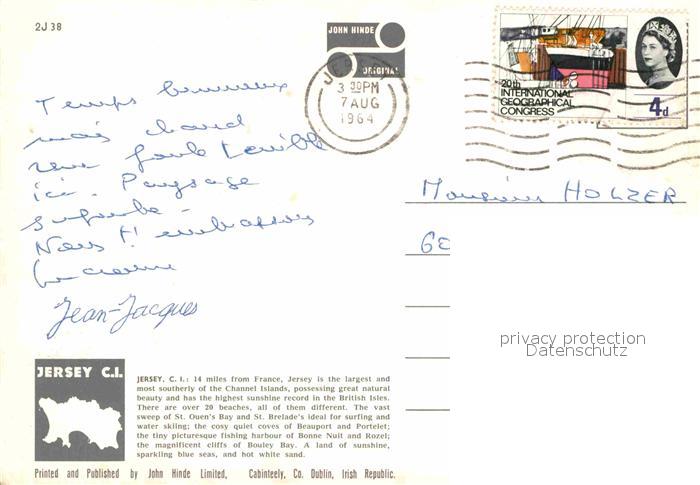 2J 38
JOHN HINDE
ORIGINAL
JERSEY
3 30PM
7 AUG
1964
20th
INTERNATIONAL
GEOGRAPHICAL
CONGRESS
4d
Temps brumeux
mais chaud
une foule terrible
ici. Paysage
superbe -
Nous t'embrassons
Jean-Jacques
Monsieur HOLZER
GE
privacy protection
Datenschutz
JERSEY C.I.
JERSEY, C. I.: 14 miles from France, Jersey is the largest and
most southerly of the Channel Islands, possessing great natural
beauty and has the highest sunshine record in the British Isles.
There are over 20 beaches, all of them different. The vast
sweep of St. Ouen's Bay and St. Brelade's ideal for surfing and
water skiing; the cosy quiet coves of Beauport and Portelet;
the tiny picturesque fishing harbour of Bonne Nuit and Rozel;
the magnificent cliffs of Bouley Bay. A land of sunshine,
sparkling blue seas, and hot white sand.
Printed and Published by John Hinde Limited, Cabinteely, Co. Dublin, Irish Republic.